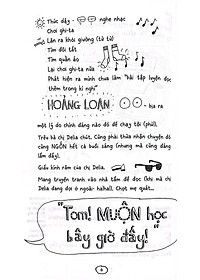 Thức dậy nghe nhạc
Chơi ghi-ta
Lăn ra khỏi giường (từ từ)
Tìm đôi tất
Tìm quần áo
Lại chơi ghi-ta nữa
Phát hiện ra mình chưa làm "bài tập luyện đọc
thêm trong kì nghỉ"
HOẢNG LOẠN bịa ra
một lý do chính đáng nào đó để chạy tội (phù!).
Trêu bà chị Delia chút. Cũng phải thừa nhận chuyện đó
cũng NGỐN hết cả buổi sáng (nhưng mà cũng đáng
lắm đấy).
Giấu kính râm của chị Delia.
Mang truyện tranh vào nhà tắm để đọc (khi mà chị
Delia đang đợi ở ngoài haha!). Chợt mẹ quát...
"Tom! MUỘN học
bây giờ đấy!"
6